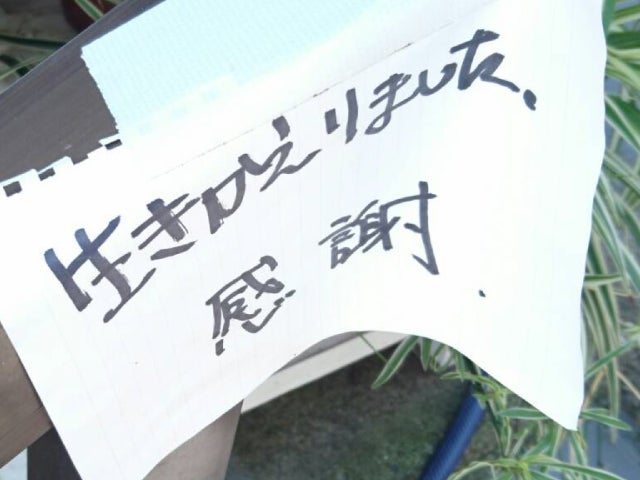 生きかえりました、
感謝.